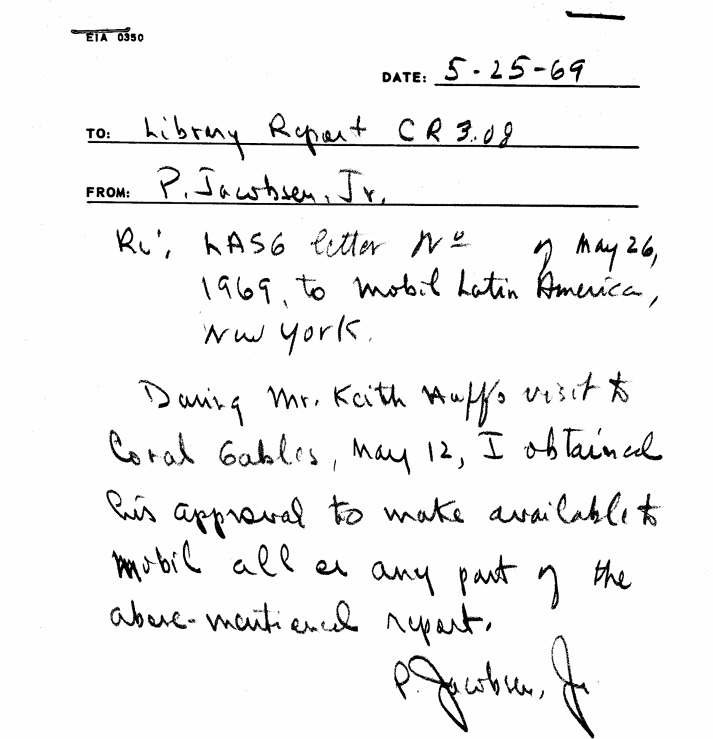 EIA 0350
DATE: 5-25-69
TO: Library Report CR 3.08
FROM: P. Jacobsen, Jr.
Re: LASG letter Nº of May 26,
1969, to Mobil Latin America,
New York.
During Mr. Keith Huff's visit to
Coral Gables, May 12, I obtained
his approval to make available to
Mobil all or any part of the
above-mentioned report.
P. Jacobsen, Jr.